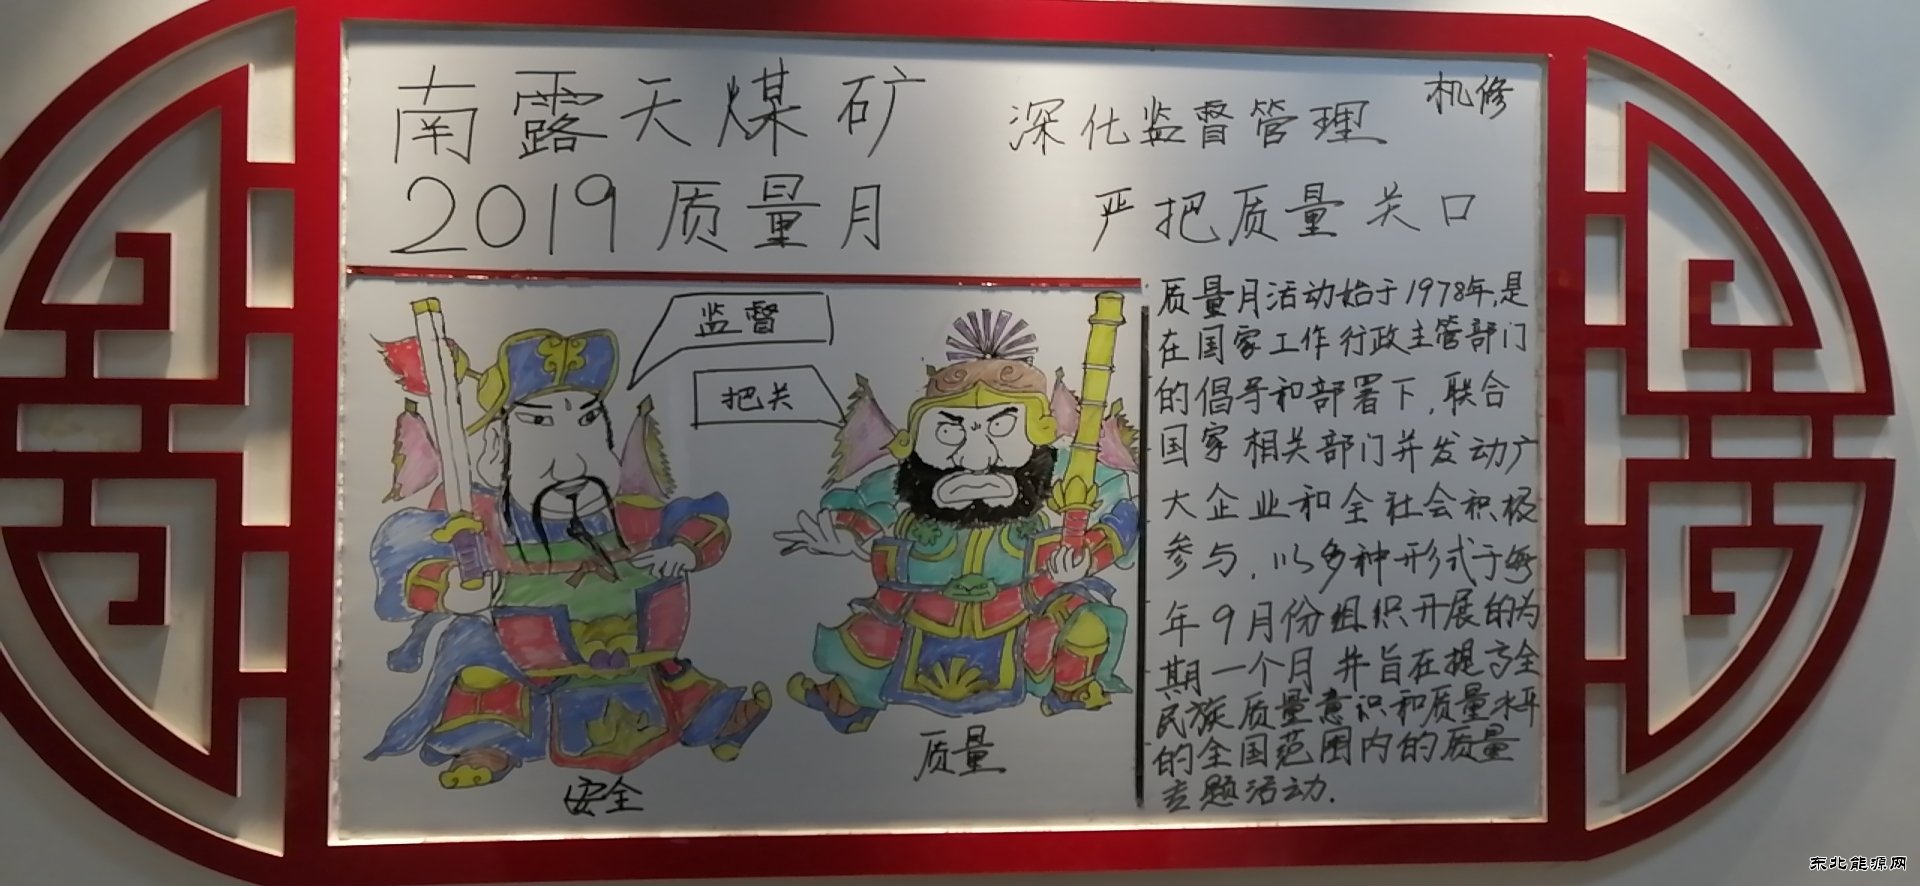 南露天煤矿
2019质量月
深化监督管理
机修
严把质量关口
监督
把关
安全
质量
质量月活动始于1978年,是
在国家工作行政主管部门
的倡导和部署下,联合
国家相关部门并发动广
大企业和全社会积极
参与,以多种形式于每
年9月份组织开展的为
期一个月并旨在提高全
民族质量意识和质量水平
的全国范围内的质量
专题活动.
东北能源网